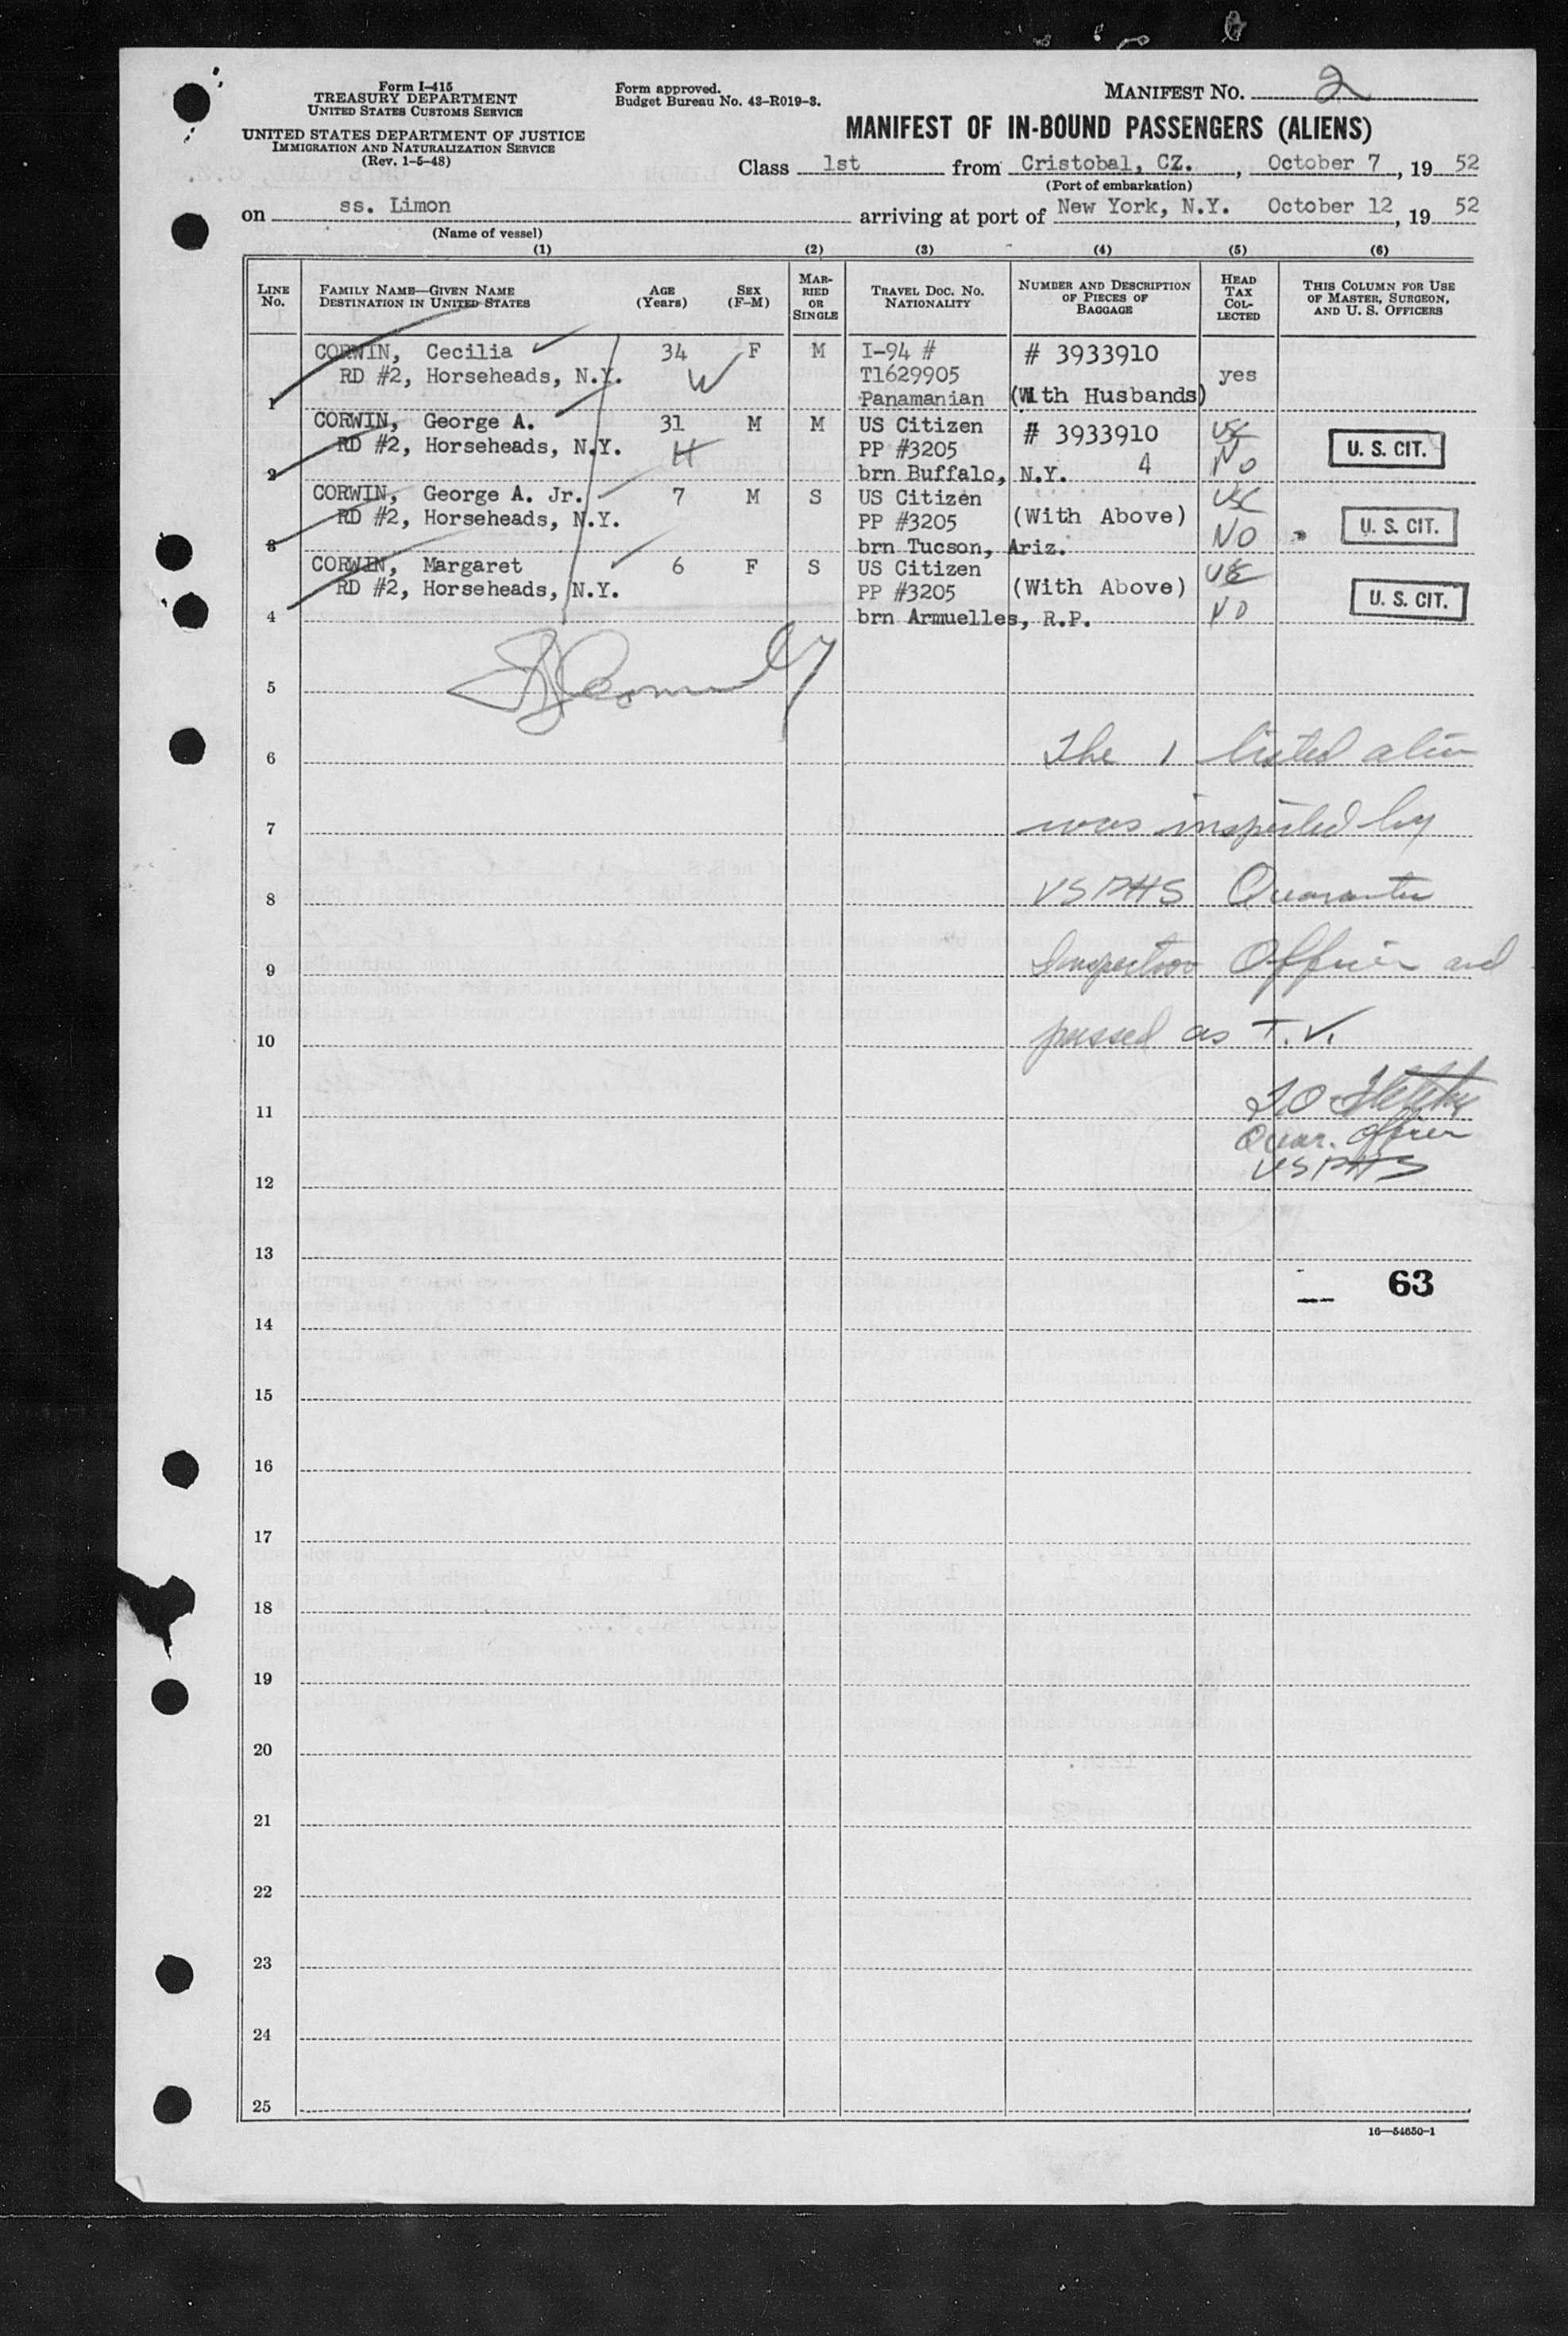 Form I-415
TREASURY DEPARTMENT
UNITED STATES CUSTOMS SERVICE
UNITED STATES DEPARTMENT OF JUSTICE
IMMIGRATION AND NATURALIZATION SERVICE
(Rev. 1-5-48)
Form approved.
Budget Bureau No. 43-R019-3.
MANIFEST NO. 2
MANIFEST OF IN-BOUND PASSENGERS (ALIENS)
Class 1st from Cristobal, CZ., October 7, 19 52
(Port of embarkation)
on ss. Limon arriving at port of New York, N.Y. October 12, 19 52
(Name of vessel)
(1) (2) (3) (4) (5) (6)
LINE No.
FAMILY NAME—GIVEN NAME
DESTINATION IN UNITED STATES
AGE (Years)
SEX (F-M)
MARRIED OR SINGLE
TRAVEL DOC. NO.
NATIONALITY
NUMBER AND DESCRIPTION OF PIECES OF BAGGAGE
HEAD TAX COLLECTED
THIS COLUMN FOR USE OF MASTER, SURGEON, AND U. S. OFFICERS
CORWIN, Cecilia 34 F M I-94 # # 3933910
RD #2, Horseheads, N.Y. W T1629905 yes
1 Panamanian (With Husbands)
CORWIN, George A. 31 M M US Citizen # 3933910 USC
RD #2, Horseheads, N.Y. H PP #3205 No U. S. CIT.
2 brn Buffalo, N.Y. 4
CORWIN, George A. Jr. 7 M S US Citizen USC
RD #2, Horseheads, N.Y. PP #3205 (With Above) NO U. S. CIT.
3 brn Tucson, Ariz.
CORWIN, Margaret 6 F S US Citizen USC
RD #2, Horseheads, N.Y. PP #3205 (With Above) NO U. S. CIT.
4 brn Armuelles, R.P.
5
6 The 1 listed alien
7 was inspected by
8 USPHS Quarantine
9 Inspection Officer and
10 passed as T.V.
11
Quar. Officer
12 USPHS
13
63
14
15
16
17
18
19
20
21
22
23
24
25
16—54650-1